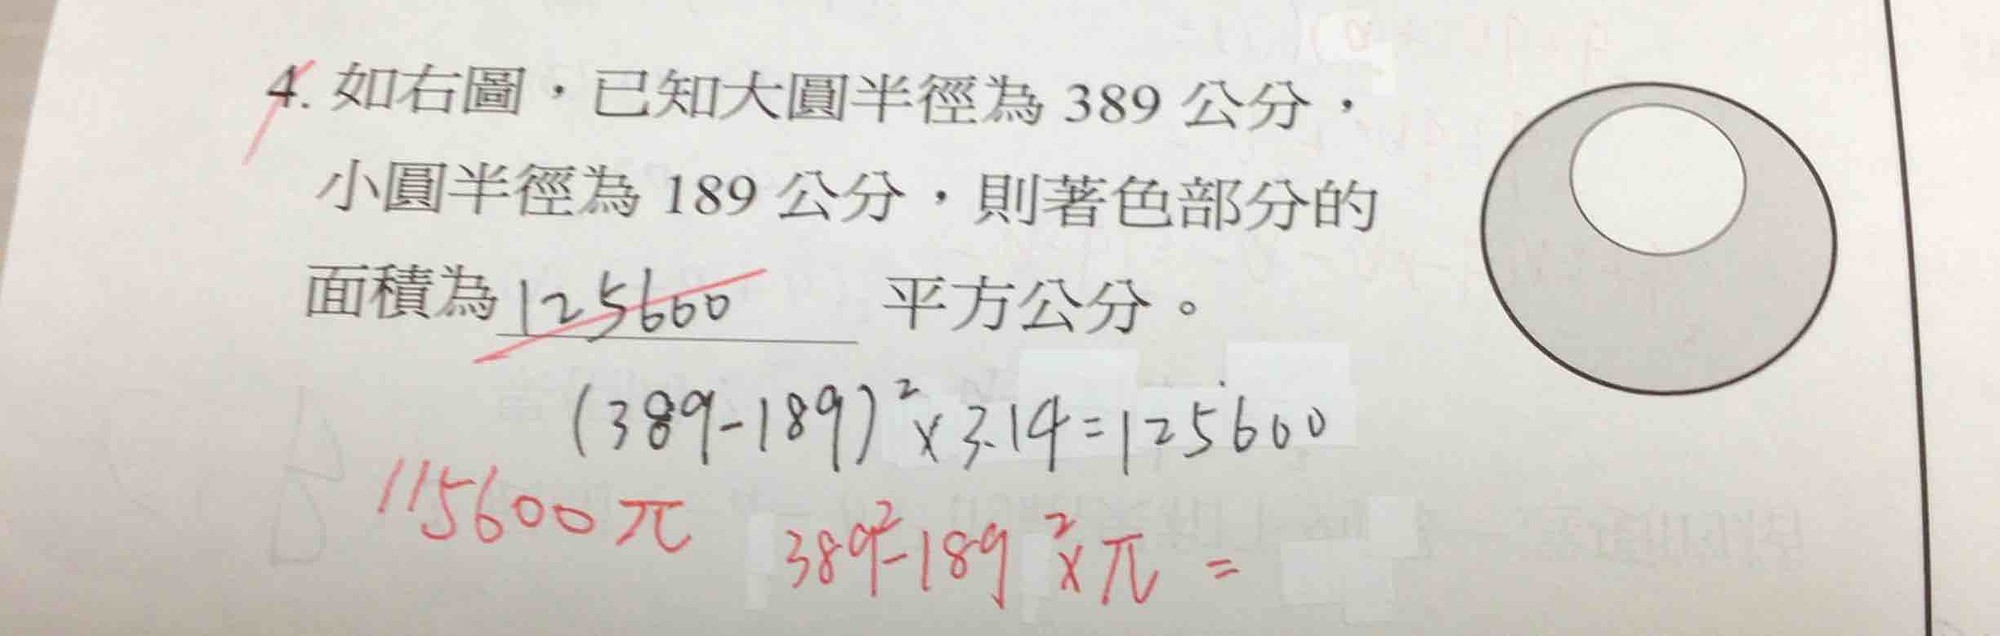 4. 如右圖，已知大圓半徑為 389 公分，
小圓半徑為 189 公分，則著色部分的
面積為 125600 平方公分。
(389-189)²×3.14=125600
115600π
389²-189²×π =